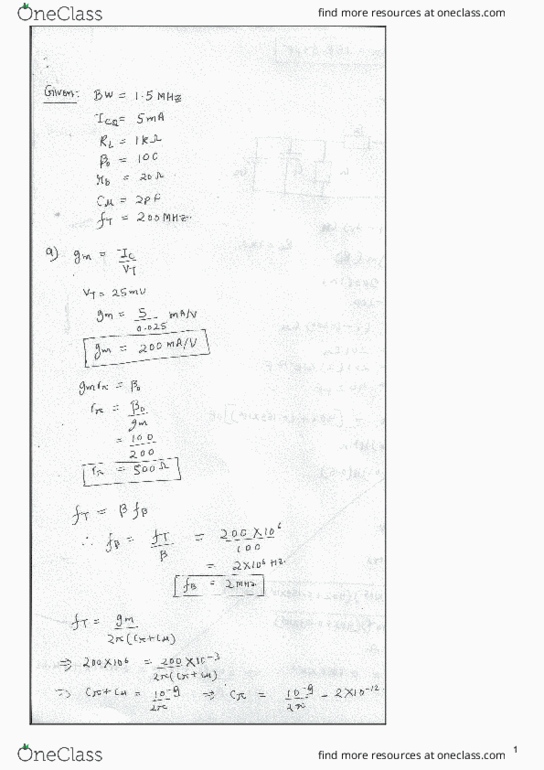 OneClass
find more resources at oneclass.com
Given: BW = 1.5 MHz
ICQ = 5mA
RL = 1kΩ
β0 = 100
rb = 20Ω
Cμ = 2PF
fT = 200MHz.
a) gm = IC / VT
VT = 25mV
gm = 5 / 0.025 mA/V
gm = 200 mA/V
gmrπ = β0
rπ = β0 / gm
= 100 / 200
rπ = 500Ω
fT = β fβ
∴ fβ = fT / β = 200 X10^6 / 100
= 2X10^6 Hz.
fβ = 2MHz
fT = gm / 2π(Cπ+Cμ)
⇒ 200X10^6 = 200X10^-3 / 2π(Cπ+Cμ)
⇒ Cπ+Cμ = 10^-9 / 2π ⇒ Cπ = 10^-9 / 2π - 2X10^-12
OneClass
find more resources at oneclass.com
1